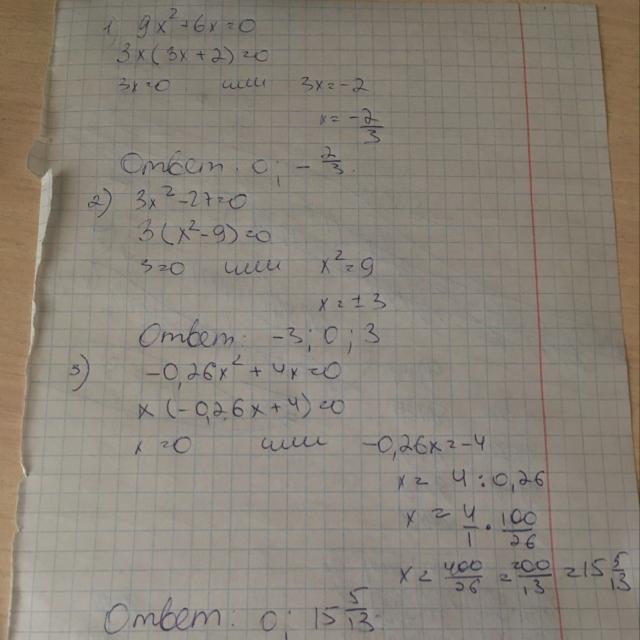 1) 9x²+6x=0
3x(3x+2)=0
3x=0 или 3x=-2
x= -2/3
Ответ: 0; -2/3.
2) 3x²-27=0
3(x²-9)=0
3=0 или x²=9
x=±3
Ответ: -3; 0; 3
3) -0,26x²+4x=0
x(-0,26x+4)=0
x=0 или -0,26x=-4
x= 4:0,26
x= 4/1 · 100/26
x= 400/26 = 200/13 = 15 5/13
Ответ: 0; 15 5/13.